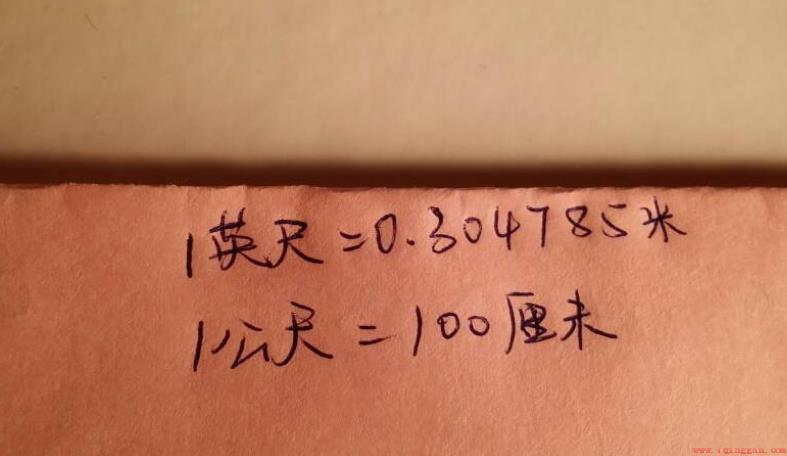 1英尺=0.304785米
1公尺=100厘米
www.iqinggan.com